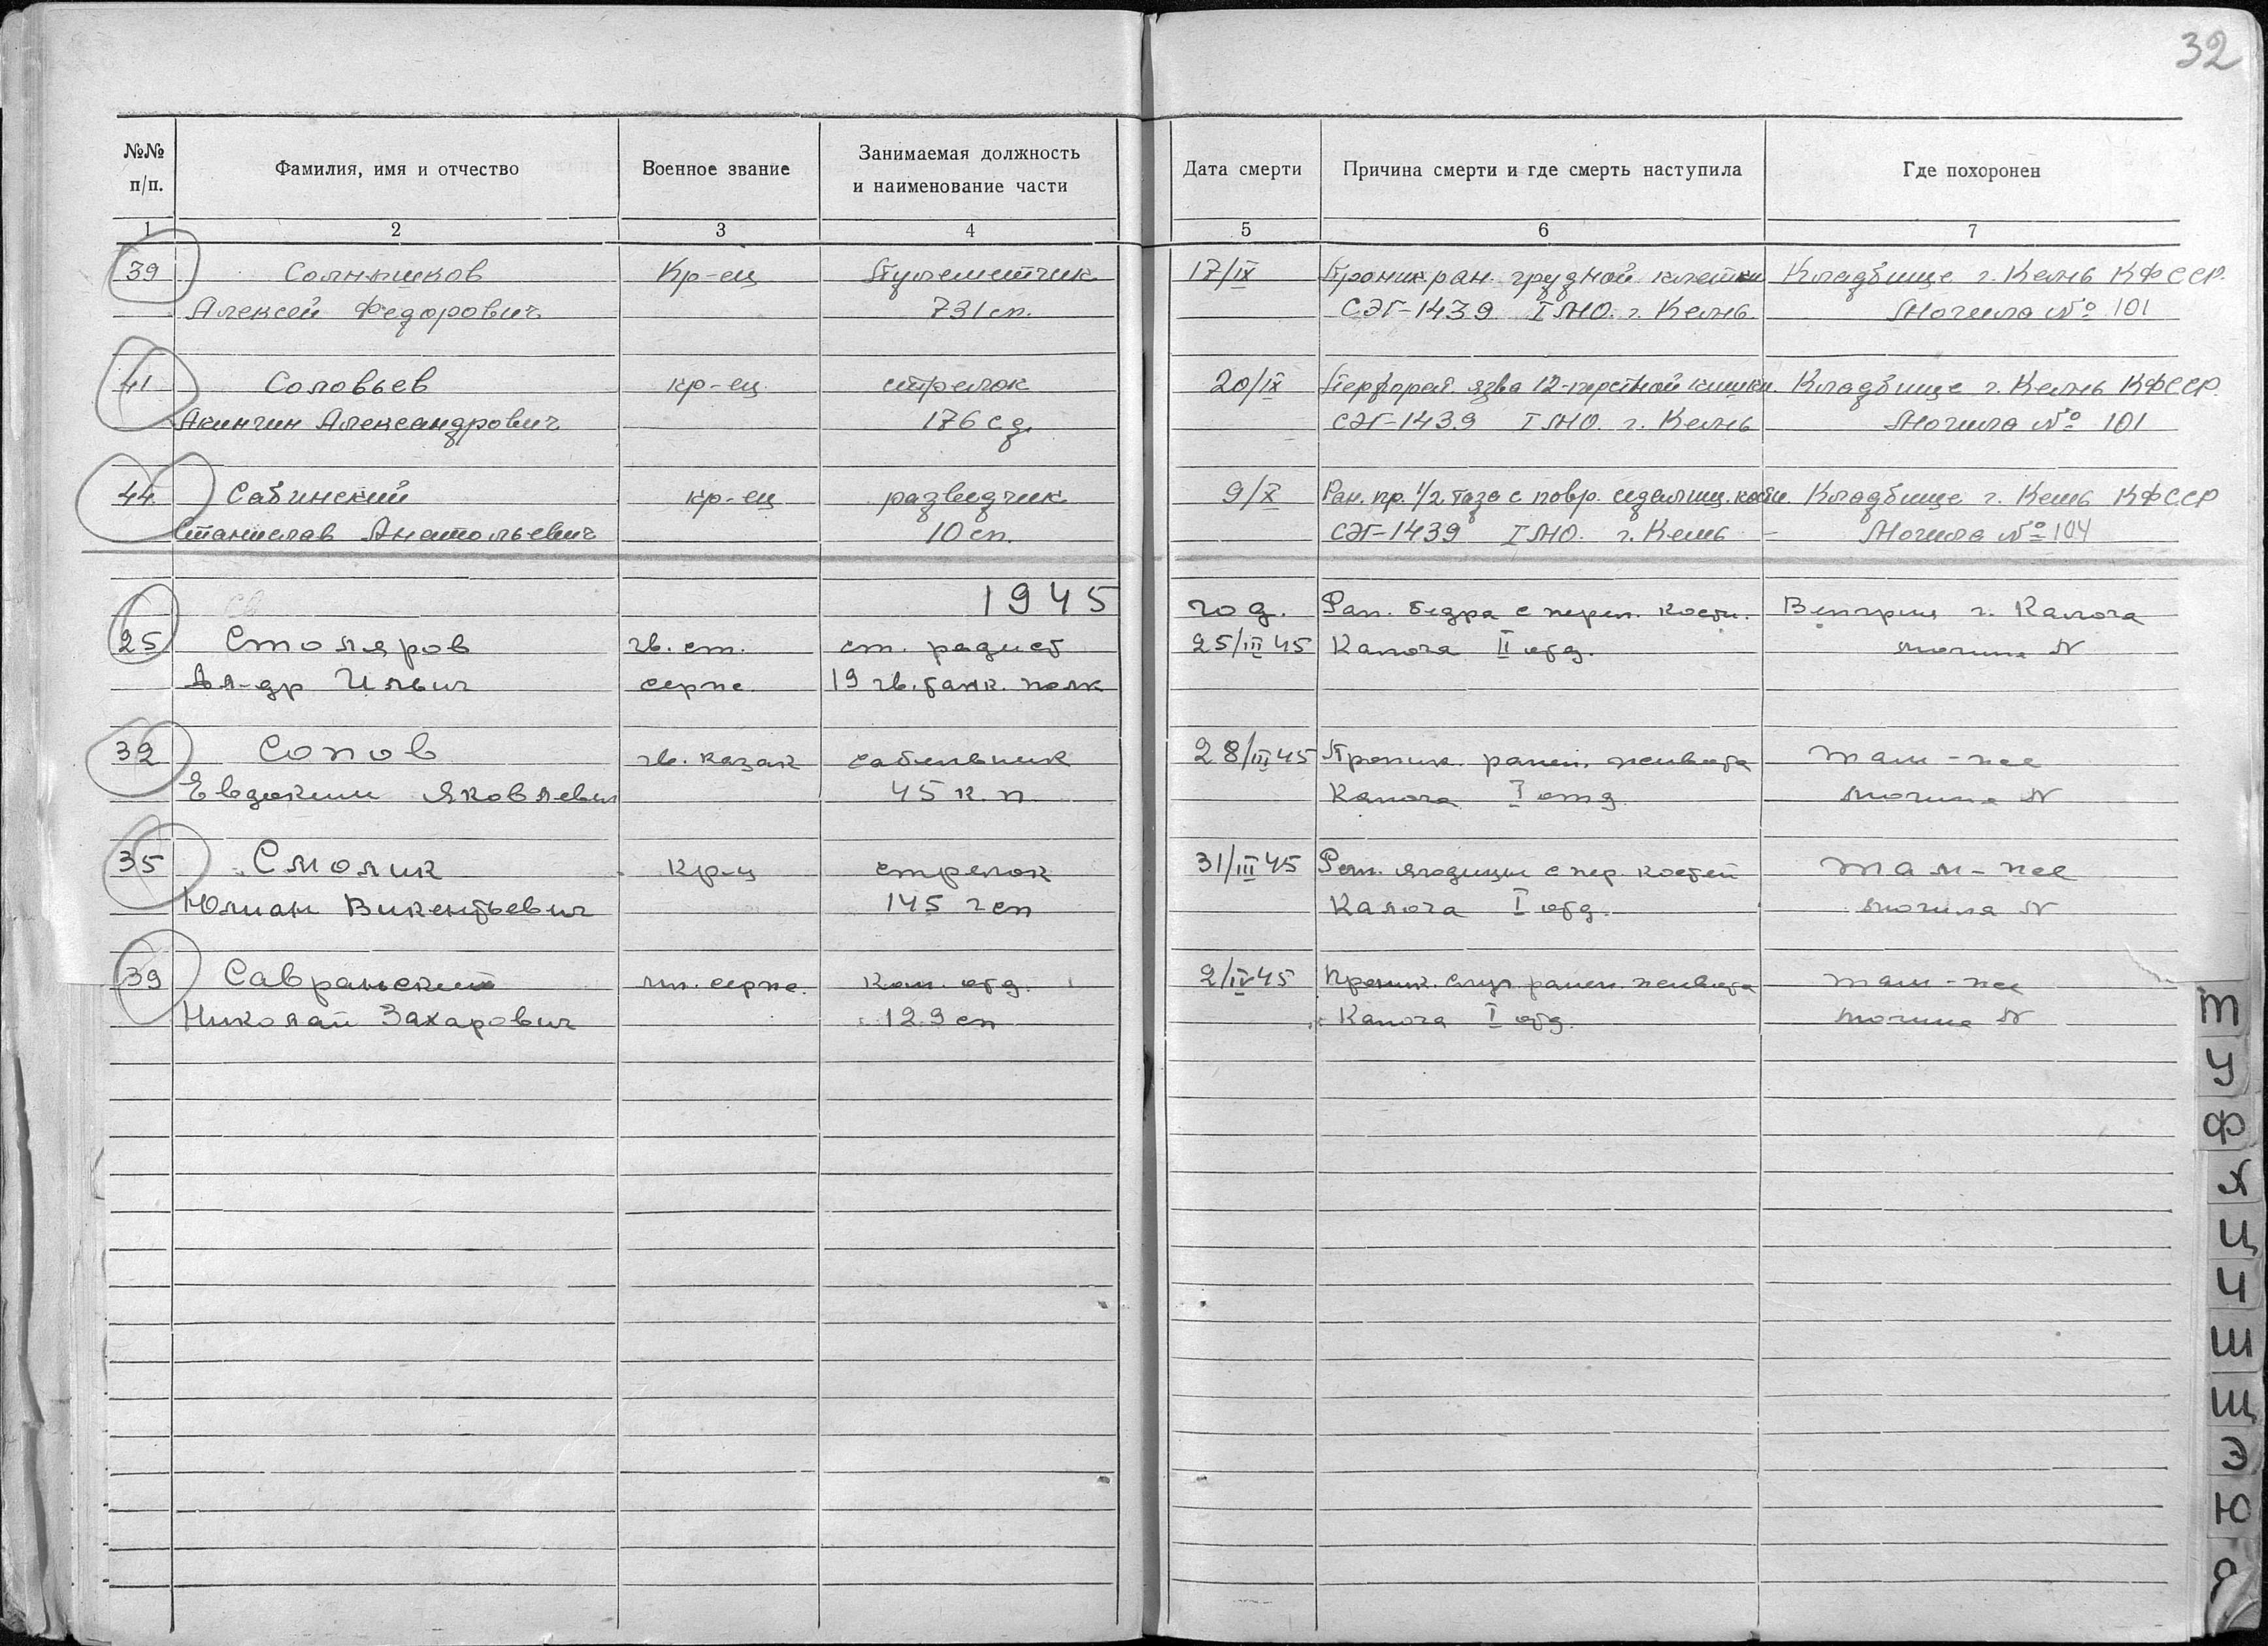 32
№№ п/п. Фамилия, имя и отчество Военное звание Занимаемая должность и наименование части Дата смерти Причина смерти и где смерть наступила Где похоронен
1 2 3 4 5 6 7
39 Солнышков Кр-ец Пулеметчик 17/IX Проник. ран. грудной клетки Кладбище г. Кемь КФССР.
Алексей Федорович 731 сп. СЭГ-1439 I МО. г. Кемь Могила № 101
41 Соловьев кр-ец стрелок 20/IX Перфорат. язва 12-перстной кишки. Кладбище г. Кемь КФССР.
Акинчин Александрович 176 сд. СЭГ-1439 I МО. г. Кемь Могила № 101
44. Сабинский кр-ец разведчик 9/X Ран. пр. 1/2 таза с повр. седалищ. кости. Кладбище г. Кемь КФССР
Станислав Анатольевич 10 сп. СЭГ-1439 I МО. г. Кемь - Могила № 104
1945 год. Ран. бедра с переп. кости. Венгрия г. Калоча
25 Столяров гв. ст. ст. радист 25/III 45 Калоча II отд. могила N
Ал-др Ильич серж. 19 гв. танк. полк
32 Сопов гв. казак сабельник 28/III 45 Проник. ранен. живота Там-же
Евдоким Яковлевич 45 к. п. Калоча I отд. могила N
35 Смолик кр-ц стрелок 31/III 45 Ран. ягодицы с пер. костей Там-же
Юлиан Викентьевич 145 гсп Калоча I отд. могила N
39 Савранский мл. серж. Ком. отд. 2/IV 45 Проник. слуп. ранен. живота Там-же
Николай Захарович 129 сп Калоча I отд. могила N
Т
У
Ф
Х
Ц
Ч
Ш
Щ
Э
Ю
Я